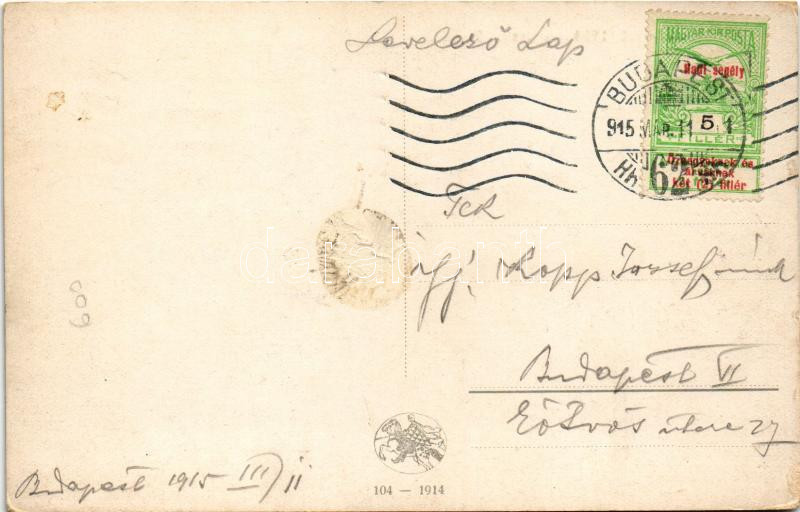 Levelező Lap
MAGYAR KIR. POSTA
Hadi segély
5
FILLÉR
Özvegyeknek és
árváknak
két (2) fillér
BUDAPEST
915 MÁR. 11
62
Tek
ifj. Kopp Jozsef úrnak
Budapest VII
Eötvös utca 27
Budapest 1915 III/11
104 — 1914
600
darabanth